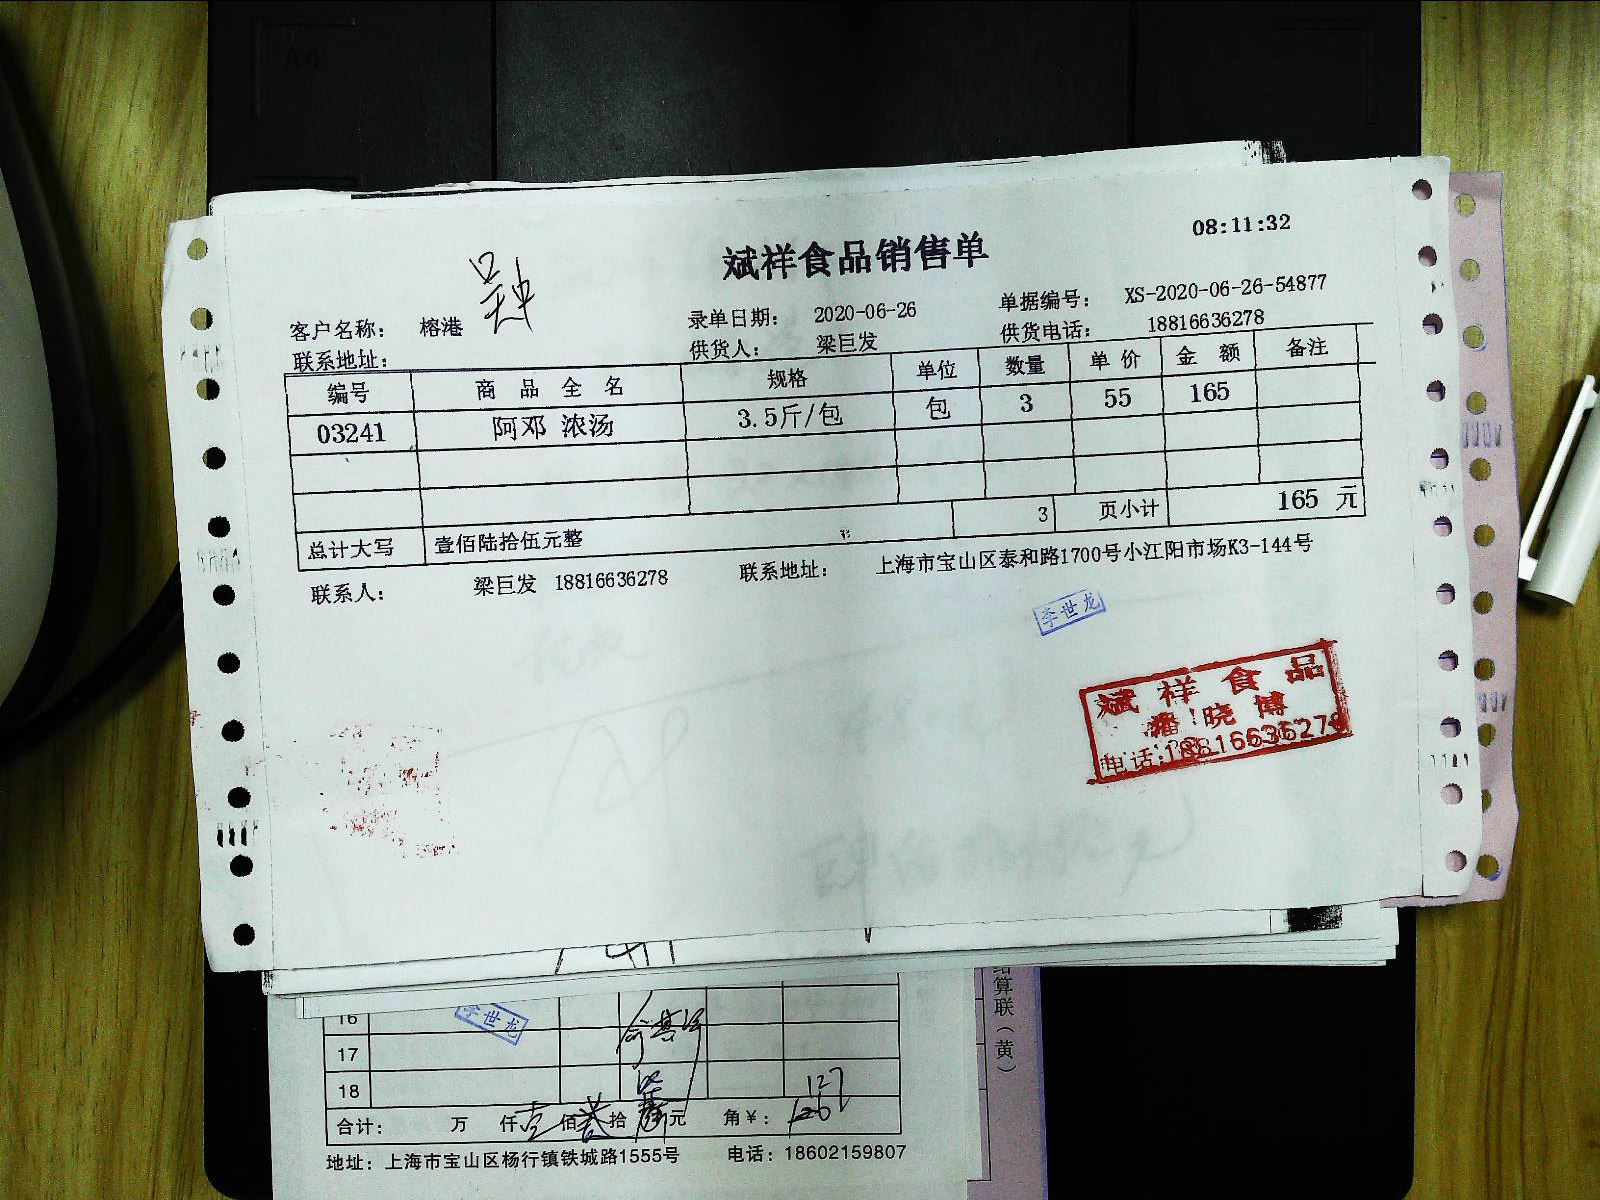 08:11:32
斌祥食品销售单
客户名称： 榕港 录单日期： 2020-06-26 单据编号： XS-2020-06-26-54877
联系地址： 供货人： 梁巨发 供货电话： 18816636278
编号 商品全名 规格 单位 数量 单价 金额 备注
03241 阿邓 浓汤 3.5斤/包 包 3 55 165
3 页小计 165 元
总计大写 壹佰陆拾伍元整
联系人： 梁巨发 18816636278 联系地址： 上海市宝山区泰和路1700号小江阳市场K3-144号
李世龙
斌祥食品
潘晓博
电话:18816636278
结算联（黄）
16
李世龙
17
18
127
合计： 万 仟 佰 拾 元 角￥：
地址：上海市宝山区杨行镇铁城路1555号 电话：18602159807